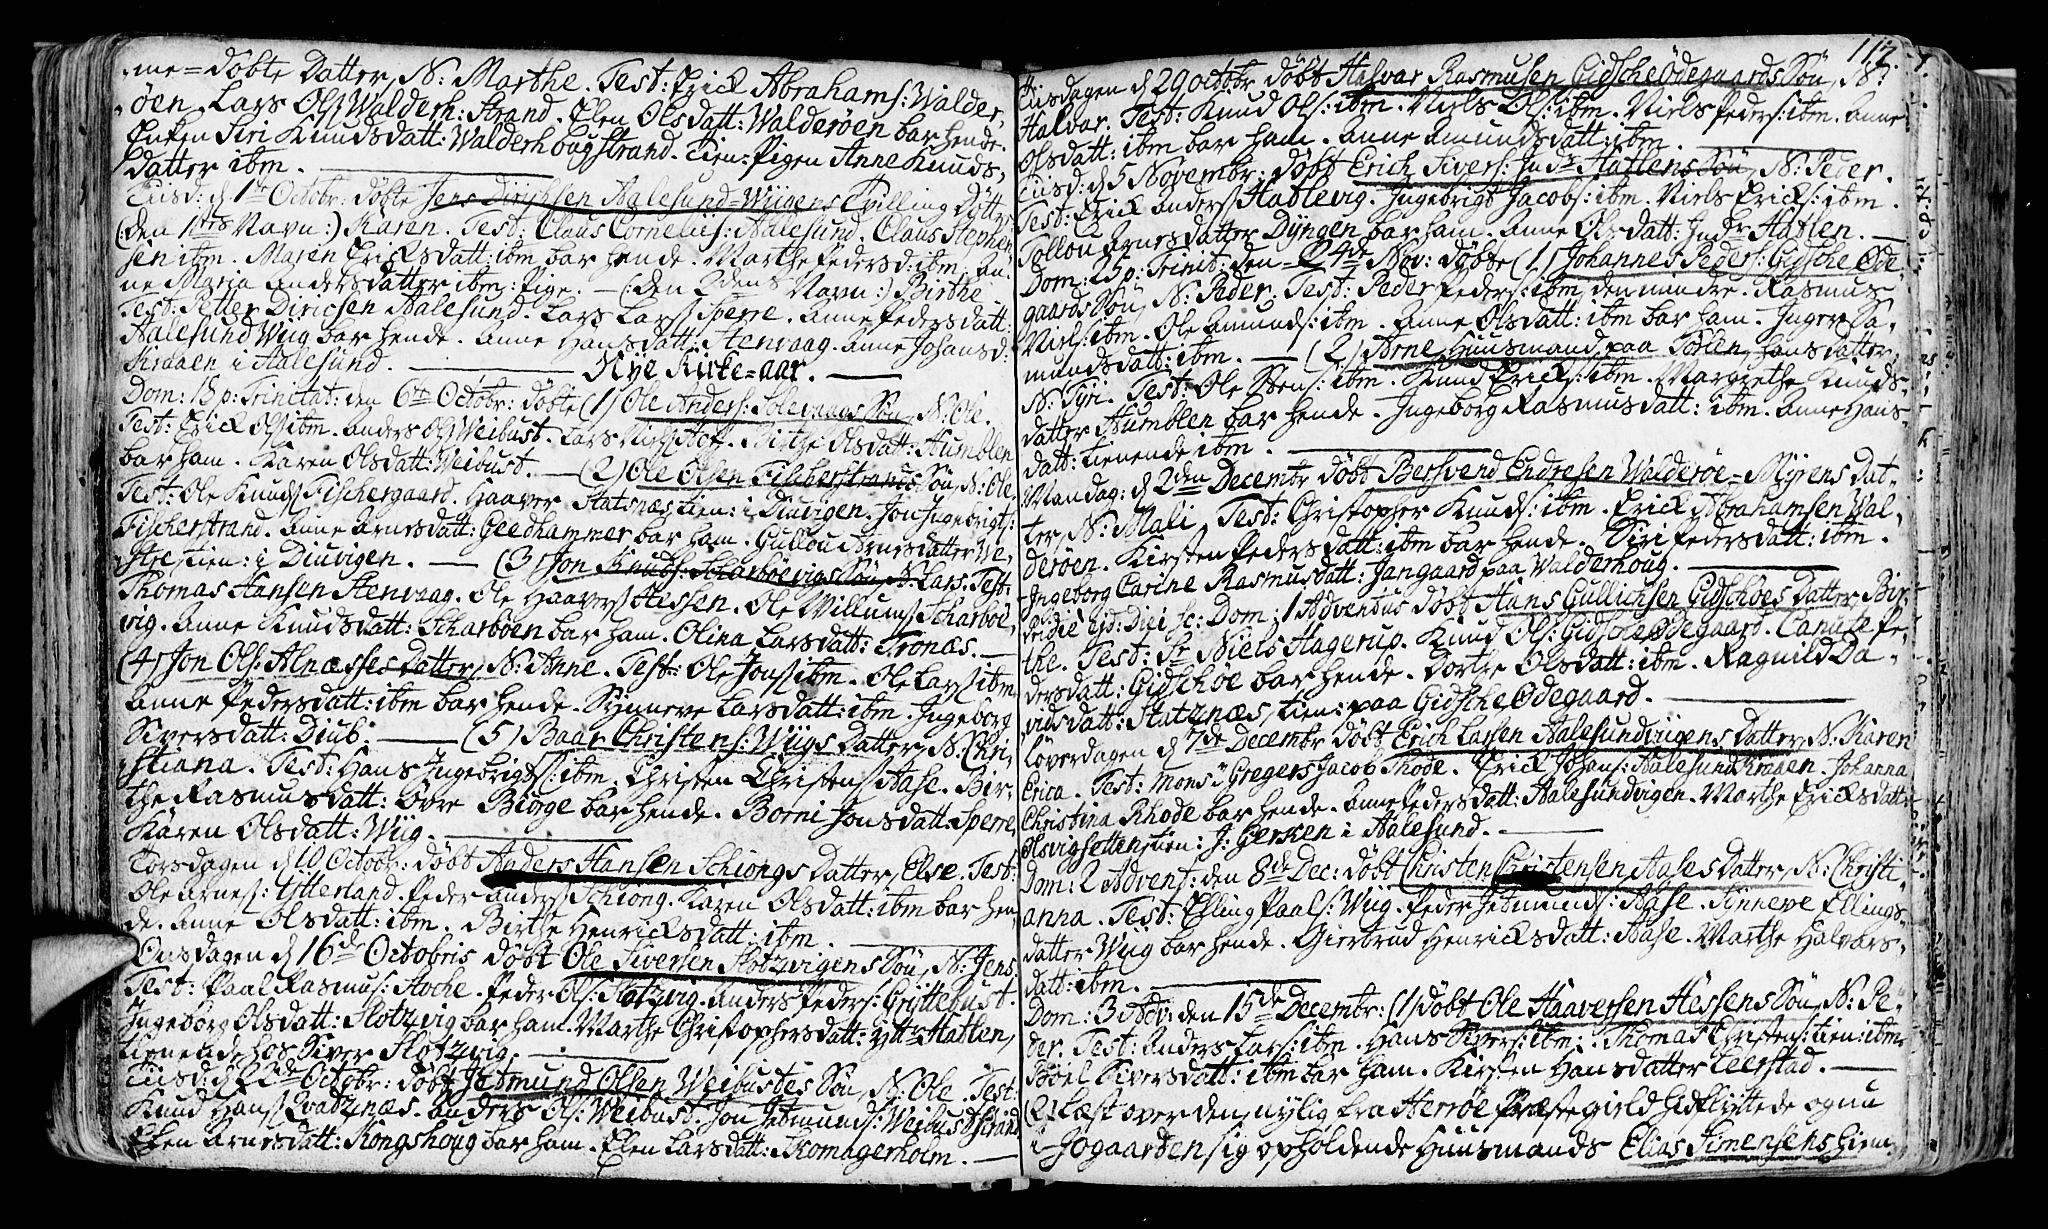 me=døbte Datter, N: Marthe. Test: Erick Abrahams: Walder,
øen. Lars Ols: Walderh: Strand. Elen Olsdatt: Walderøen bar hende.
Enken Siri Knudsdatt: Walderhougstrand. tien: Pigen Anne Knuds,
datter ibm.
Tiisd: d 1te Octobr: døbte Jens Dirichsen Aalesund=Wiigens Tvilling Døttr
(: den 1stes Navn :) Karen. Test: Claus Cornelis: Aalesund. Claus Stephen
sen ibm. Maren Ericksdatt: ibm bar hende. Marthe Pedersd: ibm. An,
ne Maria Andersdatter ibm: Pige. — (: den 2dens Navn :) Birthe
Test: Petter Dirichsen Aalesund. Lars Lars: Sperre. Anne Pedersdatt:
Aalesund Wiig bar hende. Anne Hansdatt: Stenvaag. Anne Johansd:
Kraaen i Aalesund.
Nye Kirke=aar.
Dom: 18 p: Trinitat: den 6te Octobr: døbte (1) Ole Anders: Solevaags Søn, N: Ole.
Test: Erick Ols: ibm. Anders Ols: Weibust. Lars Niels: Birthe Olsdatt: Humblen
bar ham. Karen Olsdatt: Weibust. — (2) Ole Olsen Fischerstrands Søn, N: Ole.
Test: Ole Knuds: Fischergaard. Haaver Statsnæs tien: i Diuvigen. Jon Ingebrigt:
Fischerstrand. Anne Arnesdatt: Geedhammer bar ham. Gullou Arnesdatter We,
stre tien: i Diuvigen. — (3) Jon Knuds: Scharboevigs Søn, N: Lars. Test:
Thomas Hansen Stenvaag. Ole Haavers: Hessen. Ole Willums: Scharboe,
vig. Anne Knudsdatt: Scharboen bar ham. Olina Larsdatt: Tronæs. —
(4) Jon Ols: Alnæsses Datter, N: Anne. Test: Ole Jons: ibm. Ole Lars: ibm.
Anne Pedersdatt: ibm bar hende. Synneve Larsdatt: ibm. Ingeborg
Siversdatt: Diub: — (5) Baar Christens: Wiigs Datter, N: Chri,
stiana. Test: Hans Ingebrigts: ibm. Christen Christens: Aase. Bir,
the Rasmusdatt: øvre Biørge bar hende. Borni Jonsdatt: Sperre
Karen Olsdatt: Wiig.
Torsdagen d 10 Octobr: døbt Anders Hansen Schiongs Datter, Else. Test:
Ole Arnes: Ytterland. Peder Anders: Schiong. Karen Olsdatt: ibm bar hen,
de. Anne Olsdatt: ibm. Birthe Henricksdatt: ibm.
Onsdagen d 16de Octobris døbt Ole Siversen Slotzvigens Søn, N: Jens.
Test: Paal Rasmus: Peder Ols: Slotzvig. Anders Peders: Gryttebust.
Ingeborg Olsdatt: Slotzvig bar ham. Marthe Christophersdatt: yttr Hatlen,
tienende hos Siver Slotzvig.
Tiisd: d 22de Octobr: døbt Jetmund Olsen Weibustes Søn, N: Ole. Test:
Knud Hans: Qvatznæs. Anders Ols: Weibust. Jon Jetmunds: Weibuststrand
Elen Arnesdatt: Kongshoug bar ham. Elen Larsdatt: Skomagerholm. —
117.
Tiisdagen d 29 Octobr: døbt Halvar Rasmusen Gidsche Ødegaards Søn, N:
Halvar. Test: Knud Ols: ibm. Niels Ols: ibm. Niels Peders: ibm. Anne
Olsdatt: ibm bar ham. Anne Amundsdatt: ibm.
Tiisd: d 5 Novembr: døbt Erich Sivers: Indr Hatlens Søn, N: Peder.
Test: Erick Anders: Hatlevig. Ingebrigt Jacobs: ibm. Niels Ericks: ibm.
Tollou Arnesdatter Dyngen bar ham. Anne Olsdatt: Indr Hatlen. —
Dom: 25 p: Trinit: den 24de Nov: døbte (1) Johannes Peders: Gidsche Øde,
gaards Søn, N: Peder. Test: Peder Peders: ibm, den mindre. Rasmus
Niels: ibm. Ole Amunds: ibm. Anne Olsdatt: ibm bar ham. Inger Sa,
mundsdatt: ibm. — (2) Arne, Huusmand paa Torien, hans datter,
N: Syri. Test: Ole Stens: ibm. Knud Ericks: ibm. Margrethe Knuds,
datter Humblen bar hende. Ingeborg Rasmusdatt: ibm. Anne Hans,
datt: tienende ibm.
Mandag: d 2den Decembr døbt Bersvend Endresen Walderøe=Myrens Dat,
ter, N: Mali. Test: Christopher Knuds: ibm. Erick Abrahamsen Wal,
derøen. Kirsten Pedersdatt: ibm bar hende. Siri Pedersdatt: ibm.
Ingeborg Carine Rasmusdatt: Jangaard paa Walderhoug.
Pridie ejd: Diei sc: Dom: 1 Adventus døbt Hans Gullichsen Gidschøes Datter, Bir,
the. Test: Sr Niels Hagerup. Knud Ols: Gidsche Ødegaard. Canute Pe,
dersdatt: Gidschøe bar hende. Dorthe Olsdatt: ibm. Ragnild Da,
vidsdatt: Statznæs, tien: paa Gidsche Ødegaard.
Løverdagen d 7de Decembr døbt Erich Larsen Aalesundviigens Datter, N: Karen
Erica. Test: Monsr Gregers Jacob Thode. Erick Johans: Aalesund Kraaen. Johanna
Christina Rhode bar hende. Anne Pedersdatt: Aalesundvigen. Marthe Ericksdatt:
Olsvigsetten tien: J: Gerken i Aalesund.
Dom: 2 Advent: den 8de Dec: døbt Christen Christensen Aases Datter, N: Christi,
anna. Test: Elling Paals: Wiig. Peder Jetmunds: Aase. Sinneve Ellings,
datter Wiig bar hende. Giertrud Henricksdatt: Aase. Marthe Halvars,
datt: ibm.
Dom: 3 Adv: den 15de Decembr: (1) døbt Ole Haaversen Hessens Søn, N: Pe,
der. Test: Anders Lars: ibm. Hans Sivers: ibm. Thomas Christens: tien: ibm.
Boel Siversdatt: ibm bar ham. Kirsten Hansdatter Leerstad. —
(2) Læst over den, nylig fra Herrøe Præstegield hidflyttede og nu
i Jogaarden sig opholdende Huusmands Elias Simensens hiem,